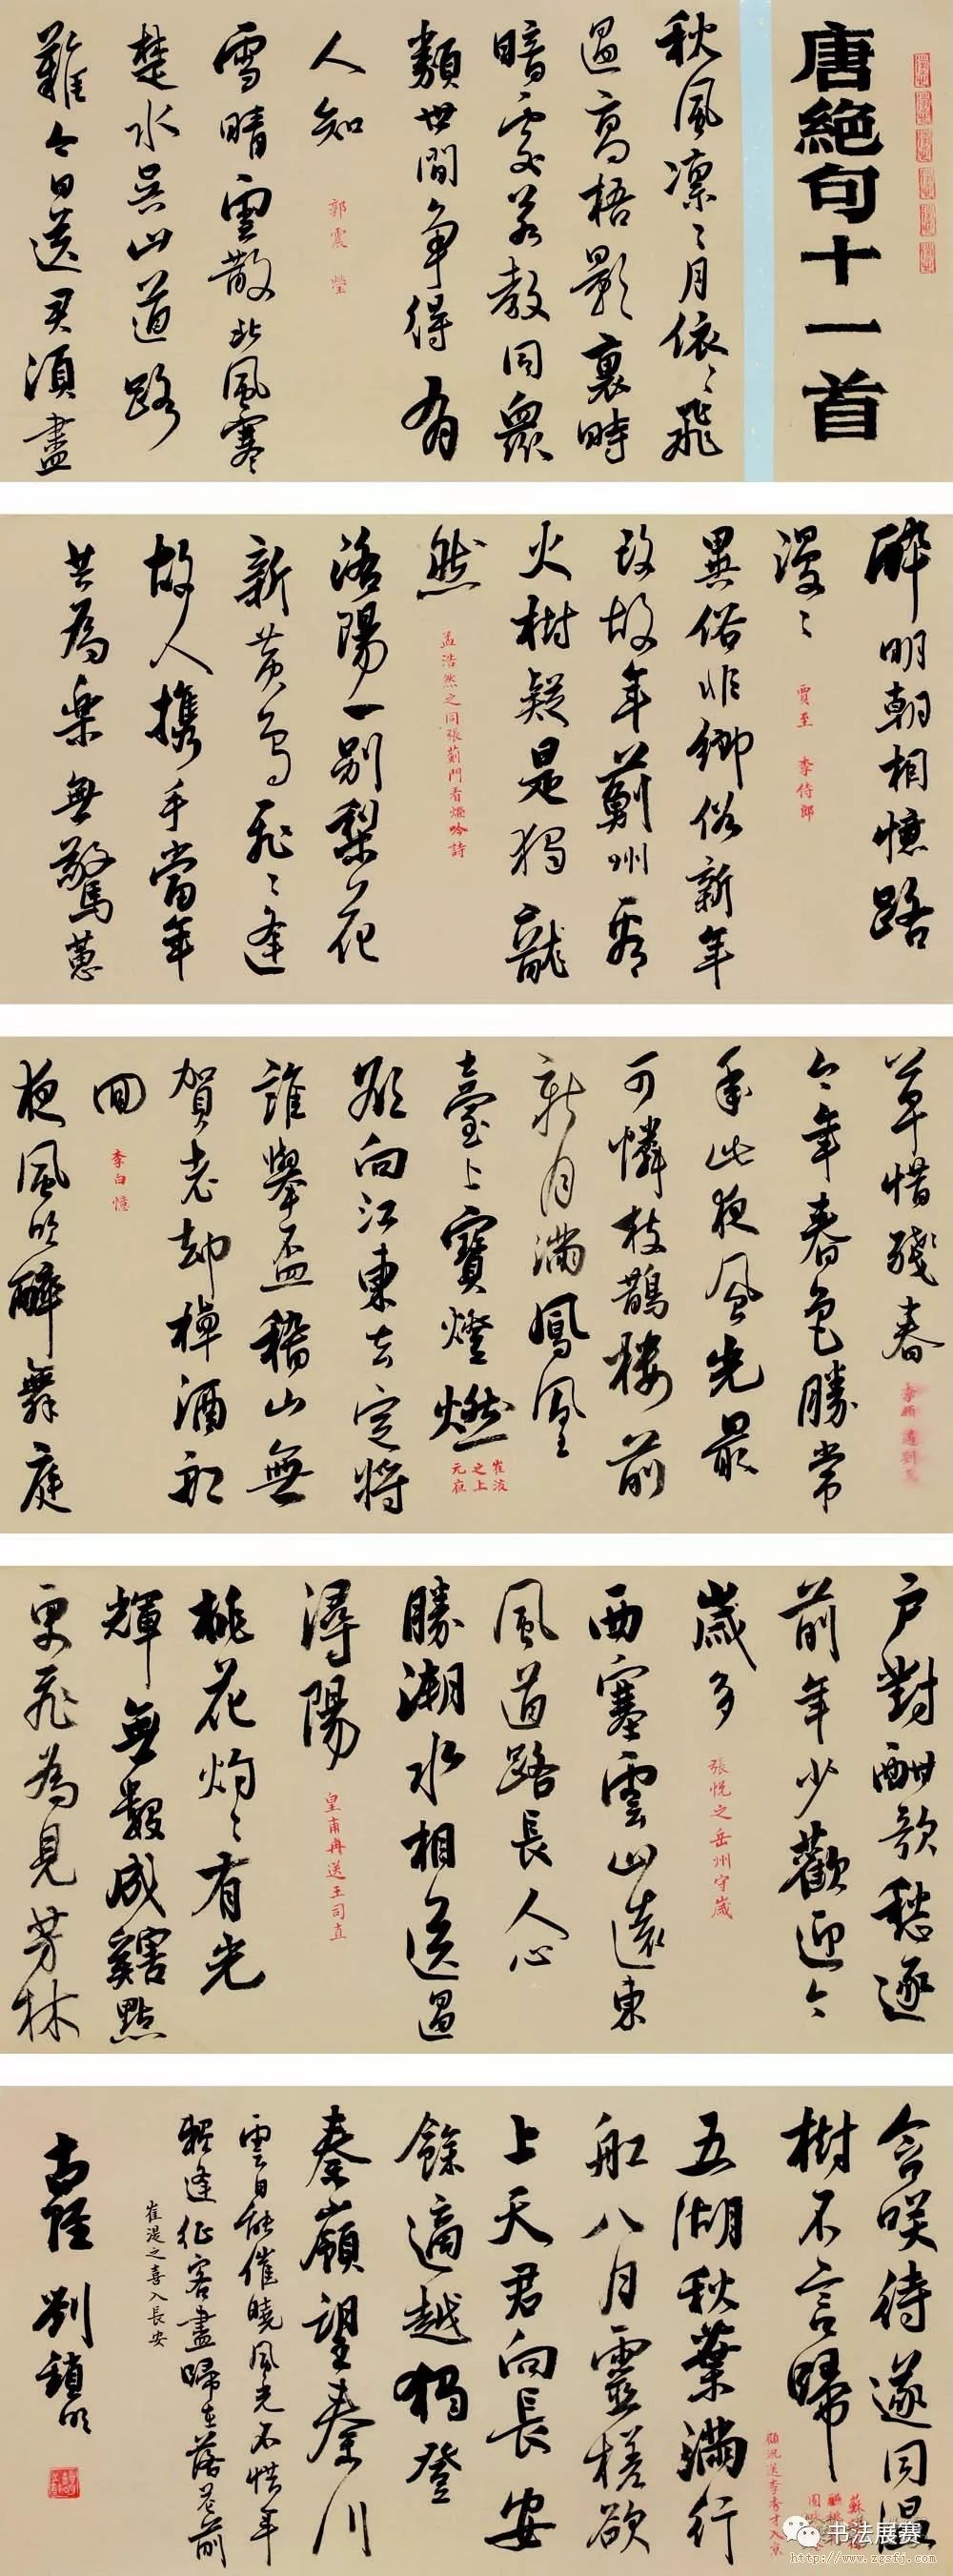 唐絕句十一首
秋風凛〻月依〻飛
過高梧影裏時
暗處若教同眾
類世間争得有
人知
郭震 螢
雪晴雲散北風寒
楚水吳山道路
難今日送君須盡
醉明朝相憶路
漫〻
賈至 李侍郎
異俗非鄉俗新年
改故年薊州看
火樹疑是獨龍
然
孟浩然之同張薊門看燈吟詩
洛陽一别梨花
新黄鳥飛〻逢
故人攜手當年
共為樂無驚蕙
草惜殘春
今年春色勝常
年此夜風光最
可憐枝鵲樓前
新月滿鳳凰
臺上寶燈燃
崔液
之上
元夜
欲向江東去定將
誰舉盃稽山無
賀老却棹酒船
回
李白憶
夜風吹醉舞庭
户對酣歌愁逐
前年少歡迎今
歲多
張悦之岳州守歲
西塞雲山遠東
風道路長人心
勝潮水相送過
潯陽
皇甫冉送王司直
桃花灼〻有光
輝無數成蹊點
更飛為見芳林
含咲待遂同温
樹不言歸
五湖秋葉滿行
船八月靈槎欲
上天君向長安
餘適越獨登
秦嶺望秦川
顧況送李秀才入京
雲日能催曉風光不惜年
賴逢征客盡歸在落花前
崔湜之喜入長安
書法展赛
http://www.zgsfj.com